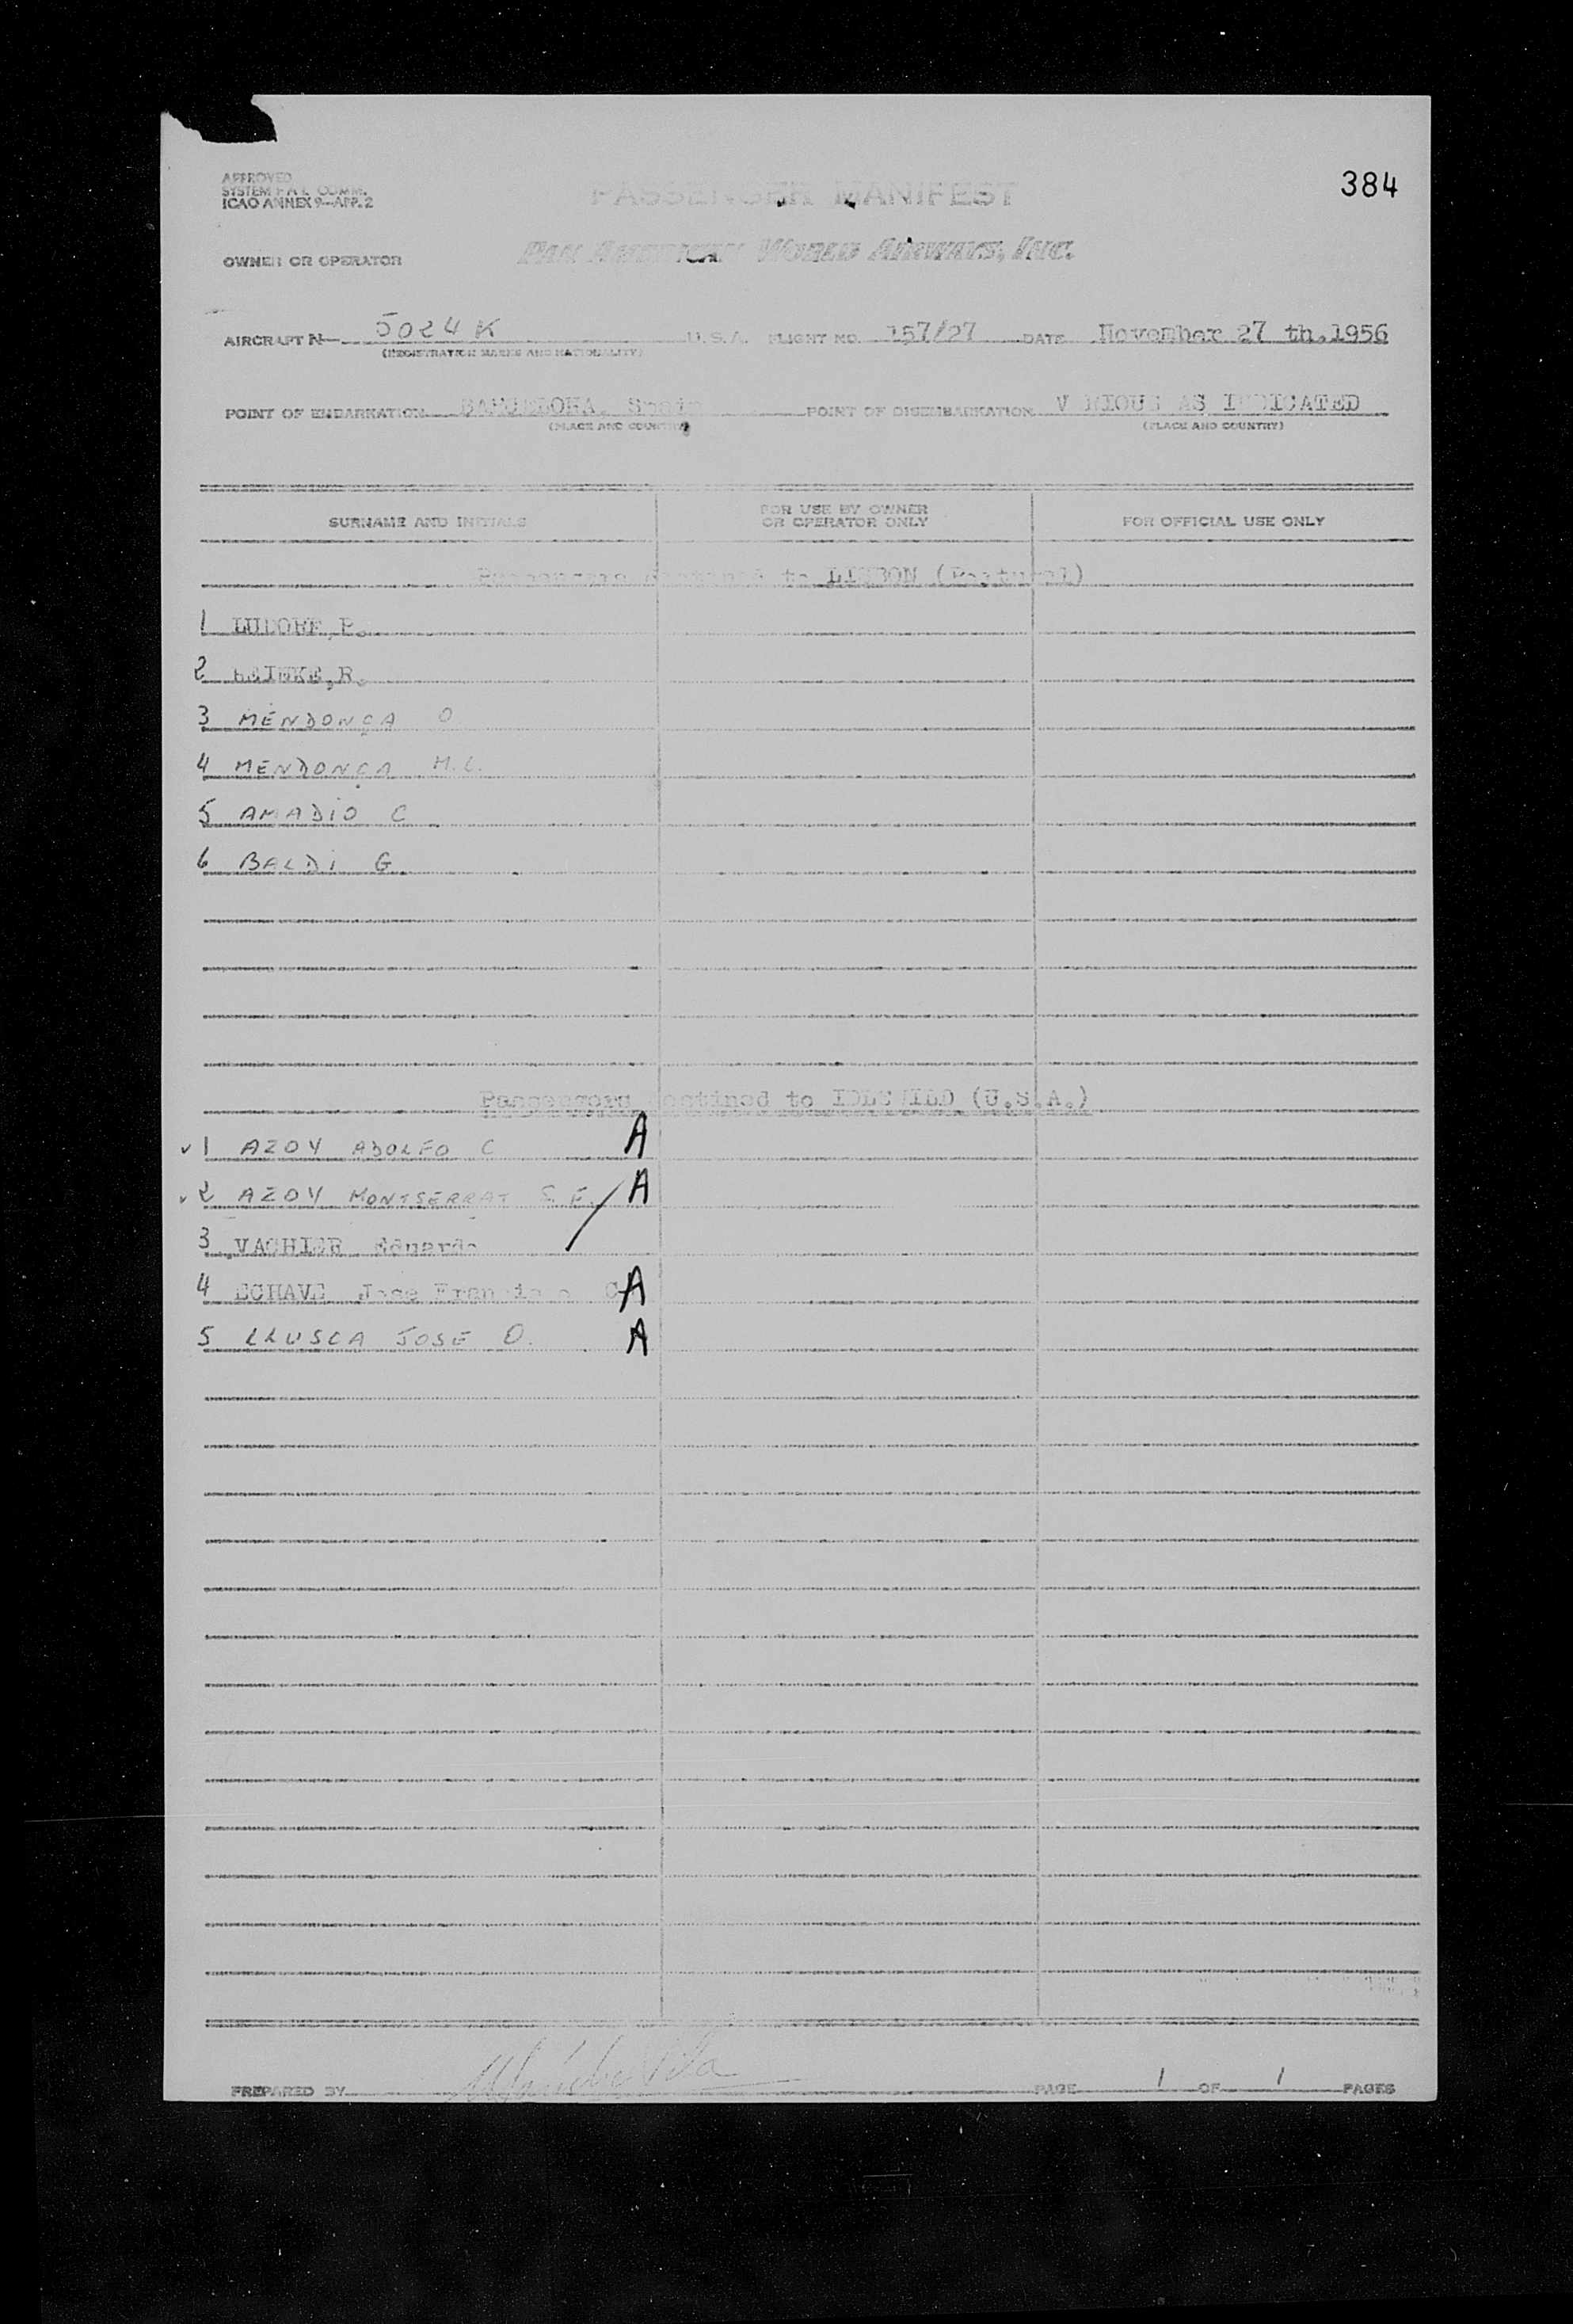 384
APPROVED
SYSTEM F A L COMM.
ICAO ANNEX 9—APP. 2
PASSENGER MANIFEST
OWNER OR OPERATOR PAN AMERICAN WORLD AIRWAYS, INC.
AIRCRAFT N— 5024 K U.S.A. FLIGHT NO. 157/27 DATE November 27 th.1956
(REGISTRATION MARKS AND NATIONALITY)
POINT OF EMBARKATION BARCELONA, Spain POINT OF DISEMBARKATION V RIOUS AS INDICATED
(PLACE AND COUNTRY) (PLACE AND COUNTRY)
SURNAME AND INITIALS FOR USE BY OWNER OR OPERATOR ONLY FOR OFFICIAL USE ONLY
Passengers destined to LISBON (Portugal)
1 LUDORF,P.
2 R.
3 MENDONÇA O
4 MENDONÇA M.L.
5 AMADIO C
6 BALDI G.
Passengers destined to IDLEWILD (U.S.A.)
✓ 1 AZOY ADOLFO C A
✓ 2 AZOY MONTSERRAT S.F. A
3 VACHIER Eduardo /
4 ECHAVE Jose Francisco C A
5 LLUSCA JOSE O. A
PREPARED BY PAGE 1 OF 1 PAGES